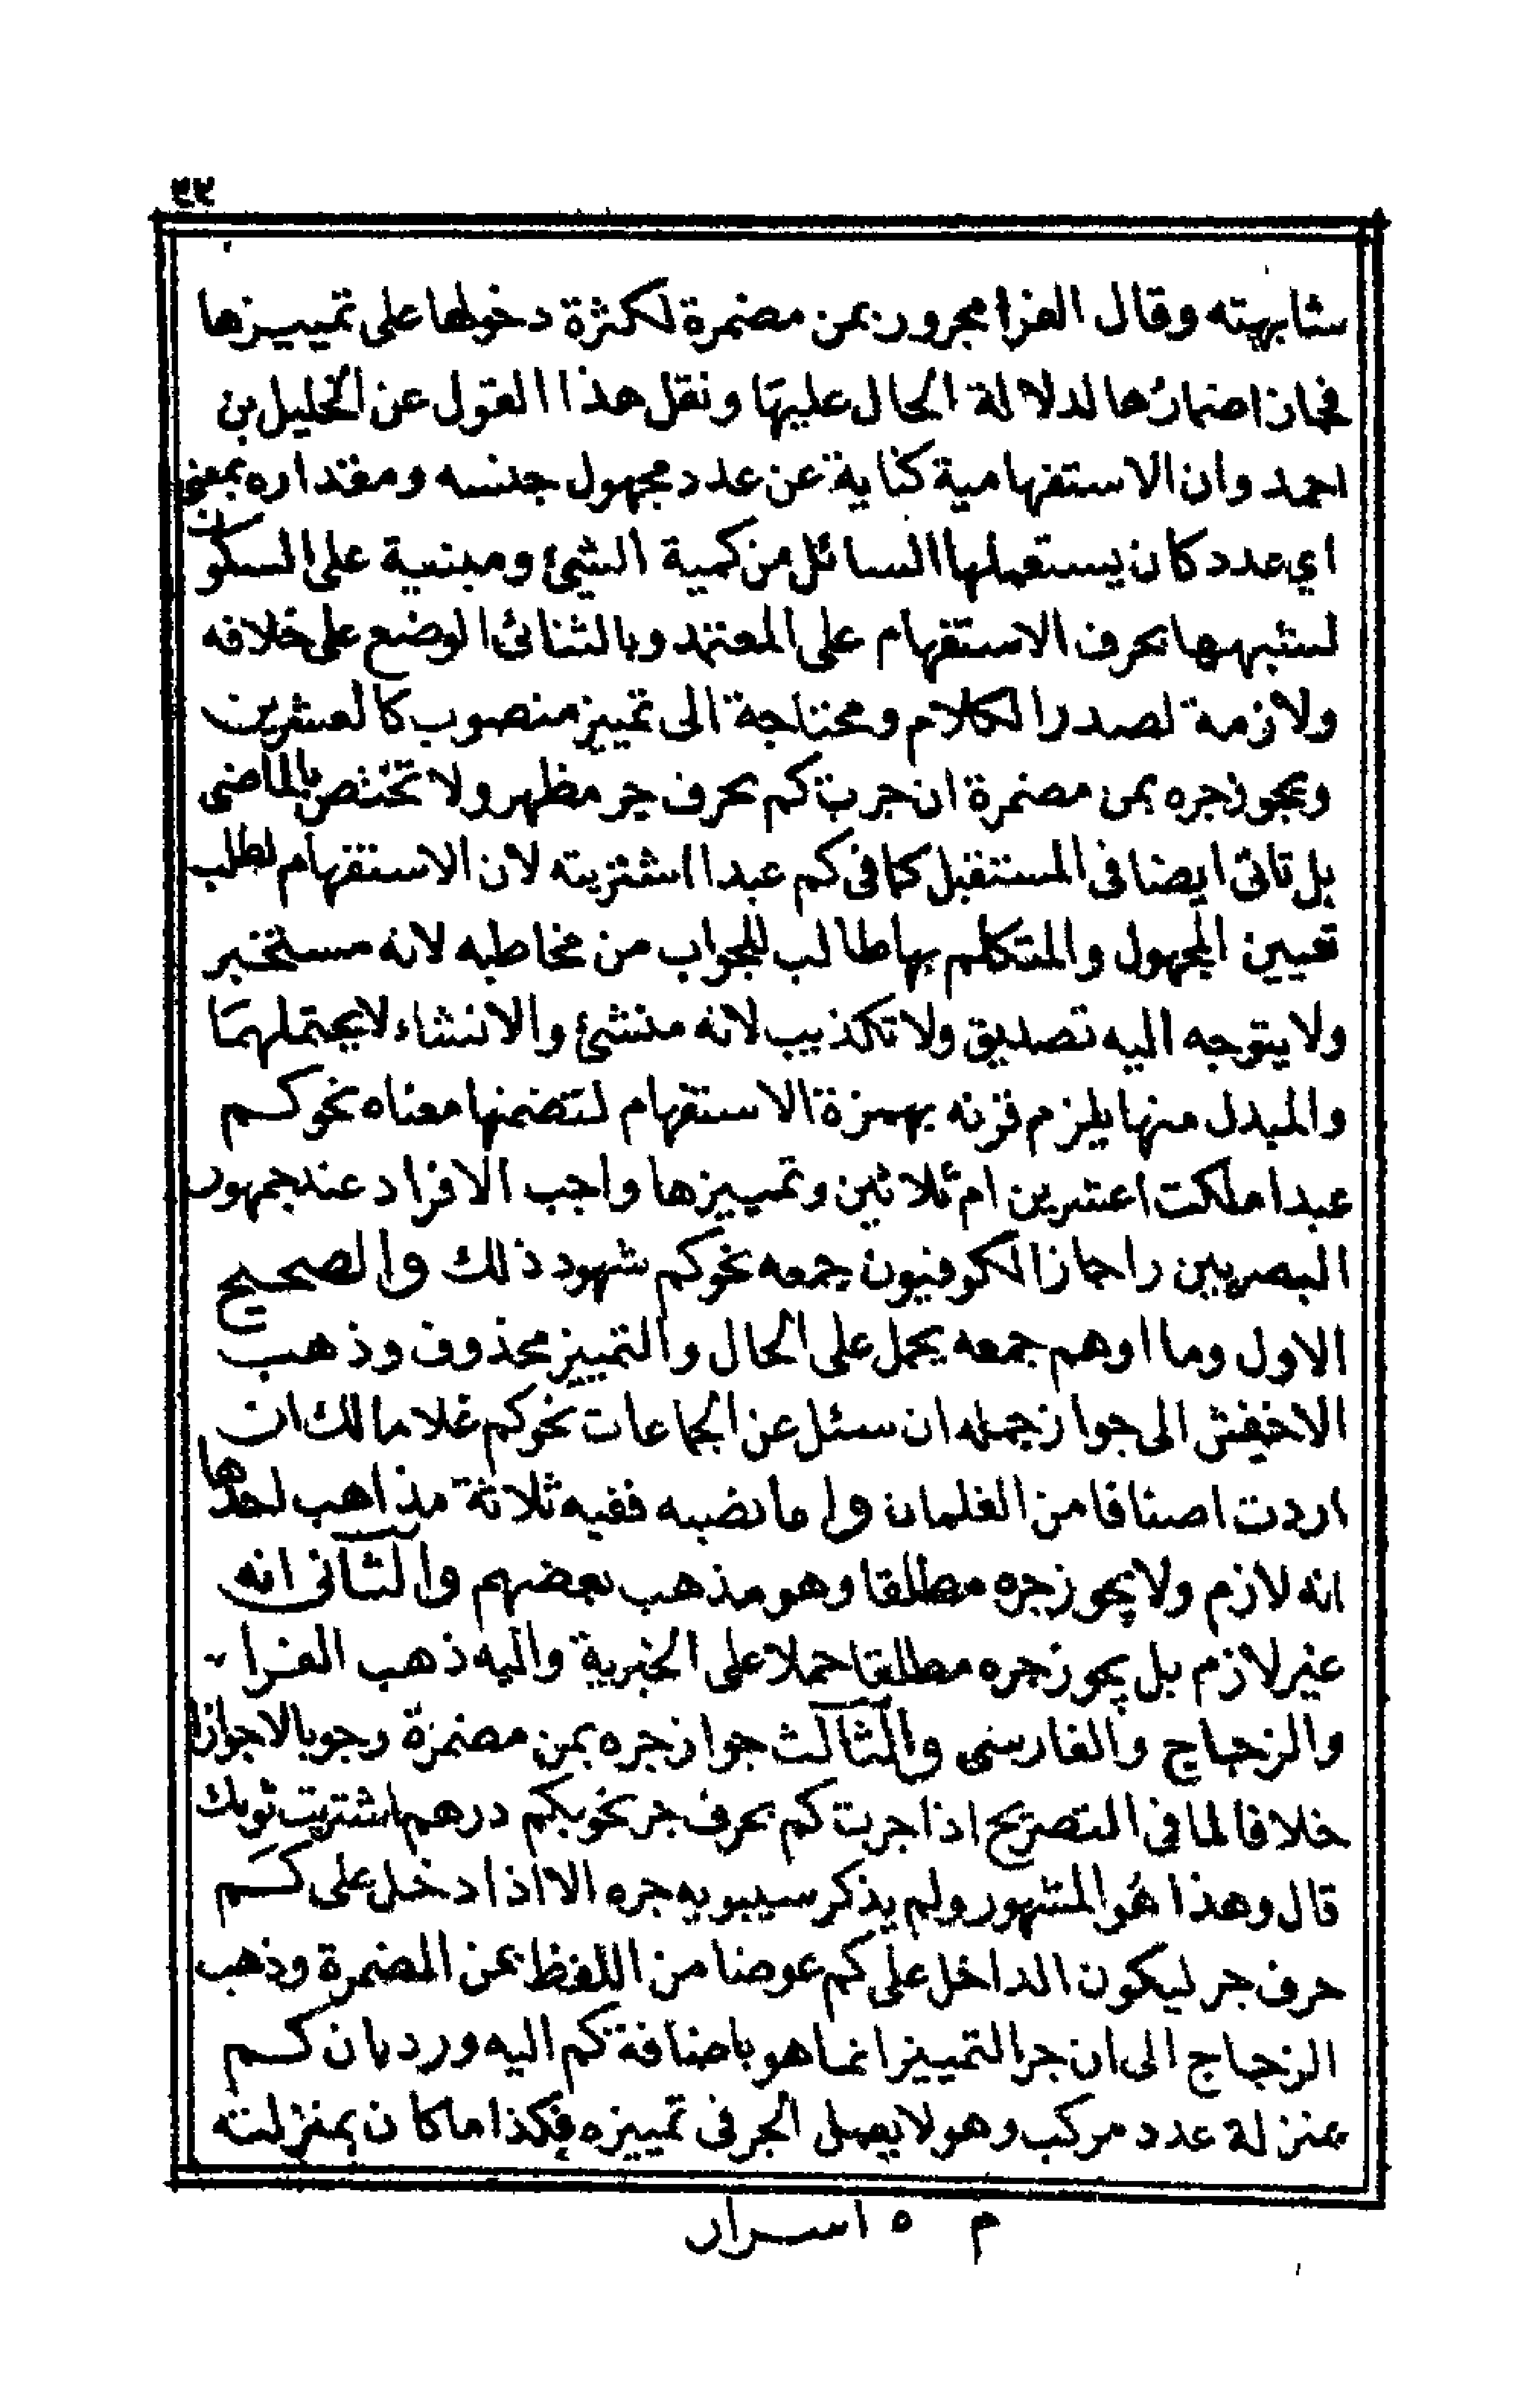 شابهته وقال الفرا مجرور بمن مضمرة لكثرة دخولها على تمييزها
فجاز اضمارها لدلالة الحال عليها ونقل هذا القول عن الخليل بن
احمد وان الاستفهامية كناية عن عدد مجهول جنسه ومقداره بمعنى
اي عدد كان يستعملها السائل من كمية الشيئ ومبنية على السكون
لشبهها بحرف الاستفهام على المعتمد وبالثنائ الوضع على خلافه
ولازمة لصدر الكلام ومحتاجة الى تمييز منصوب كالعشرين
ويجوز جره بمن مضمرة ان جرت كم بحرف جر مظهر ولا تختص بالماضى
بل تاتى ايضا فى المستقبل كما فى كم عبدا اشتريته لان الاستفهام لطلب
تعيين المجهول والمتكلم بها طالب للجواب من مخاطبه لانه مستخبر
ولا يتوجه اليه تصديق ولا تكذيب لانه منشئ والانشاء لا يحتملهما
والمبدل منها يلزم قرنه بهمزة الاستفهام لتضمنها معناه نحو كم
عبدا ملكت اعشرين ام ثلاثين وتمييزها واجب الافراد عند جمهور
البصريين واجاز الكوفيون جمعه نحو كم شهود ذلك والصحيح
الاول وما اوهم جمعه يحمل على الحال والتمييز محذوف وذهب
الاخفش الى جواز جمعه ان سئل عن الجماعات نحو كم غلاما لك ان
اردت اصنافا من الغلمان واما نصبه ففيه ثلاثة مذاهب احدها
انه لازم ولا يجوز جره مطلقا وهو مذهب بعضهم والثانى انه
غير لازم بل يجوز جره مطلقا حملا على الخبرية واليه ذهب الفرا
والزجاج والفارسى والثالث جواز جره بمن مضمرة وجوبا لا جوازا
خلافا لما فى التصريح اذا جرت كم بحرف جر نحو بكم درهم اشتريت ثوبك
قال وهذا هو المشهور ولم يذكر سيبويه جره الا اذا دخل على كم
حرف جر ليكون الداخل على كم عوضا من اللفظ بمن المضمرة وذهب
الزجاج الى ان جر التمييز انما هو باضافة كم اليه ورد بان كم
بمنزلة عدد مركب وهو لا يعمل الجر فى تمييزه فكذا ما كان بمنزلته
م ٥ اسرار